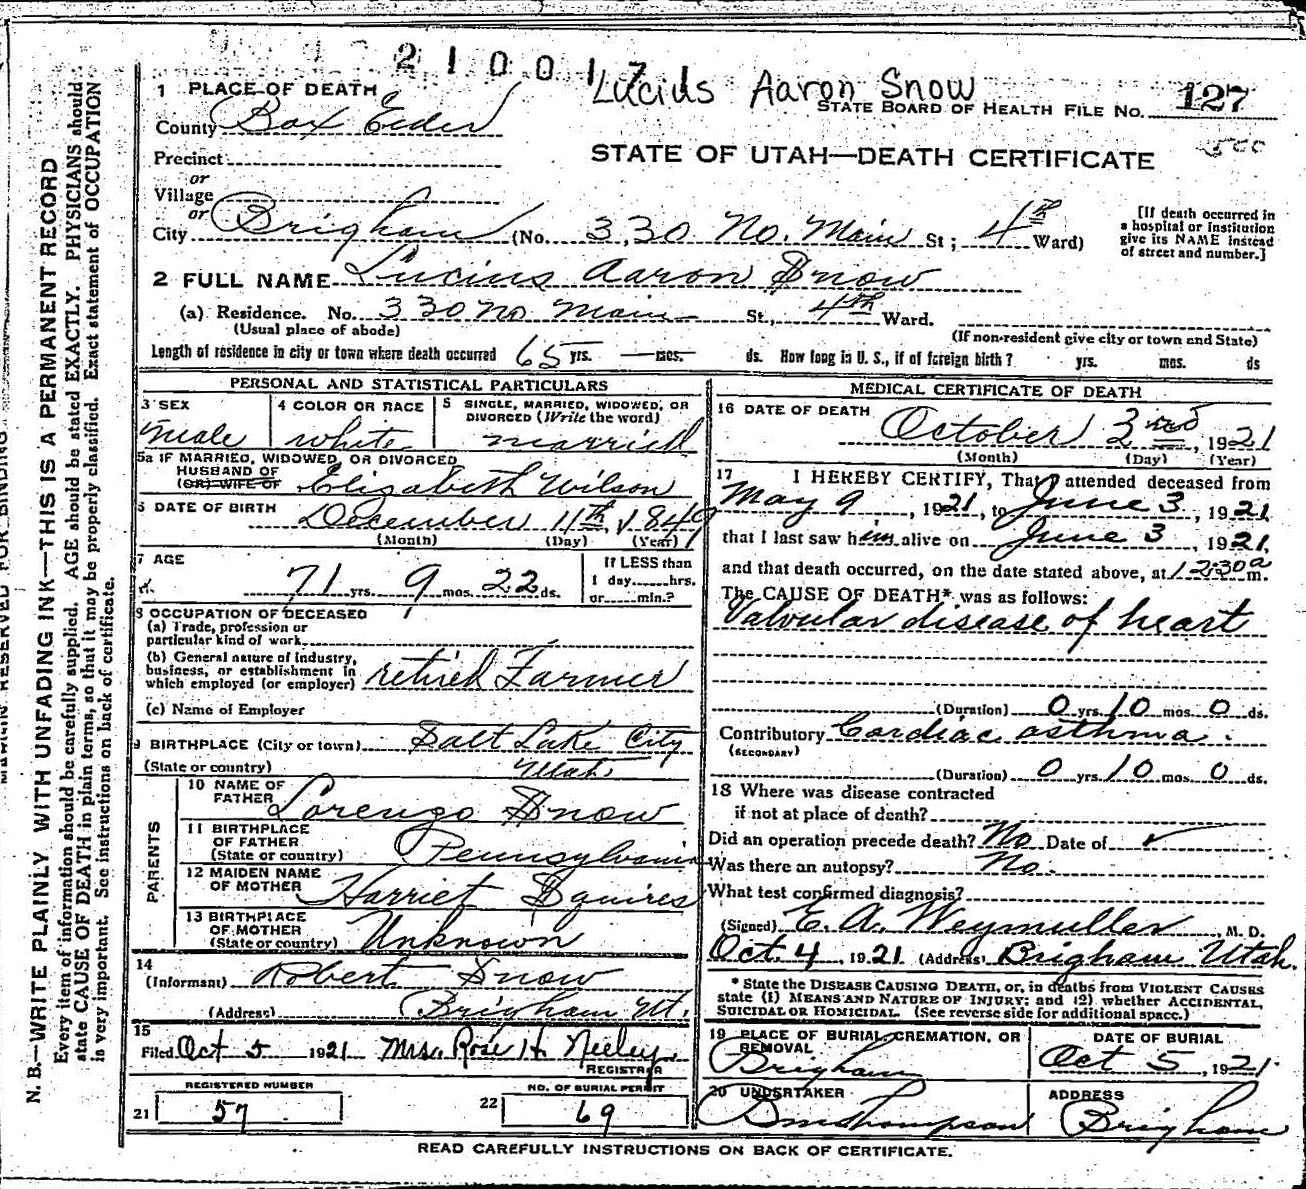 210017
Lucius Aaron Snow
1 PLACE OF DEATH
STATE BOARD OF HEALTH FILE No. 127
County Box Elder
STATE OF UTAH—DEATH CERTIFICATE
Precinct
or
Village
or
City Brigham (No. 330 No. Main St; 4th Ward)
[If death occurred in
a hospital or institution
give its NAME instead
of street and number.]
2 FULL NAME Lucius Aaron Snow
(a) Residence. No. 330 No Main St., 4th Ward.
(Usual place of abode)
(If non-resident give city or town and State)
Length of residence in city or town where death occurred 65 yrs. — mos. ds. How long in U. S., if of foreign birth? yrs. mos. ds
PERSONAL AND STATISTICAL PARTICULARS
3 SEX
male
4 COLOR OR RACE
white
5 SINGLE, MARRIED, WIDOWED, OR
DIVORCED (Write the word)
married
5a IF MARRIED, WIDOWED, OR DIVORCED
HUSBAND OF
(OR) WIFE OF Elizabeth Wilson
6 DATE OF BIRTH
December 11th, 1849
(Month) (Day) (Year)
7 AGE
71 yrs. 9 mos. 22 ds.
If LESS than
1 day......hrs.
or......min.?
8 OCCUPATION OF DECEASED
(a) Trade, profession or
particular kind of work
(b) General nature of industry,
business, or establishment in
which employed (or employer) retired Farmer
(c) Name of Employer
9 BIRTHPLACE (City or town) Salt Lake City
(State or country) Utah
PARENTS
10 NAME OF
FATHER Lorenzo Snow
11 BIRTHPLACE
OF FATHER
(State or country) Pennsylvania
12 MAIDEN NAME
OF MOTHER Harriet Squires
13 BIRTHPLACE
OF MOTHER
(State or country) Unknown
14
(Informant) Robert Snow
(Address) Brigham Ut.
15
Filed Oct 5 1921 Mrs. Rose H. Neeley.
REGISTRAR
REGISTERED NUMBER
21 57
NO. OF BURIAL PERMIT
22 69
MEDICAL CERTIFICATE OF DEATH
16 DATE OF DEATH
October 3rd, 1921
(Month) (Day) (Year)
17 I HEREBY CERTIFY, That I attended deceased from
May 9, 1921, to June 3, 1921,
that I last saw him alive on June 3, 1921,
and that death occurred, on the date stated above, at 12:30 a m.
The CAUSE OF DEATH* was as follows:
Valvular disease of heart
(Duration) 0 yrs. 10 mos. 0 ds.
Contributory Cardiac asthma.
(SECONDARY)
(Duration) 0 yrs. 10 mos. 0 ds.
18 Where was disease contracted
if not at place of death?
Did an operation precede death? No Date of ✓
Was there an autopsy? No.
What test confirmed diagnosis?
(Signed) E. A. Weymuller, M. D.
Oct. 4, 1921 (Address) Brigham Utah.
* State the DISEASE CAUSING DEATH, or, in deaths from VIOLENT CAUSES
state (1) MEANS AND NATURE OF INJURY; and (2) whether ACCIDENTAL,
SUICIDAL OR HOMICIDAL. (See reverse side for additional space.)
19 PLACE OF BURIAL, CREMATION, OR
REMOVAL
Brigham
DATE OF BURIAL
Oct 5, 1921.
20 UNDERTAKER
ADDRESS
Brigham
READ CAREFULLY INSTRUCTIONS ON BACK OF CERTIFICATE.
N. B.—WRITE PLAINLY WITH UNFADING INK—THIS IS A PERMANENT RECORD
Every item of information should be carefully supplied. AGE should be stated EXACTLY. PHYSICIANS should
state CAUSE OF DEATH in plain terms, so that it may be properly classified. Exact statement of OCCUPATION
is very important. See instructions on back of certificate.
MARGIN RESERVED FOR BINDING